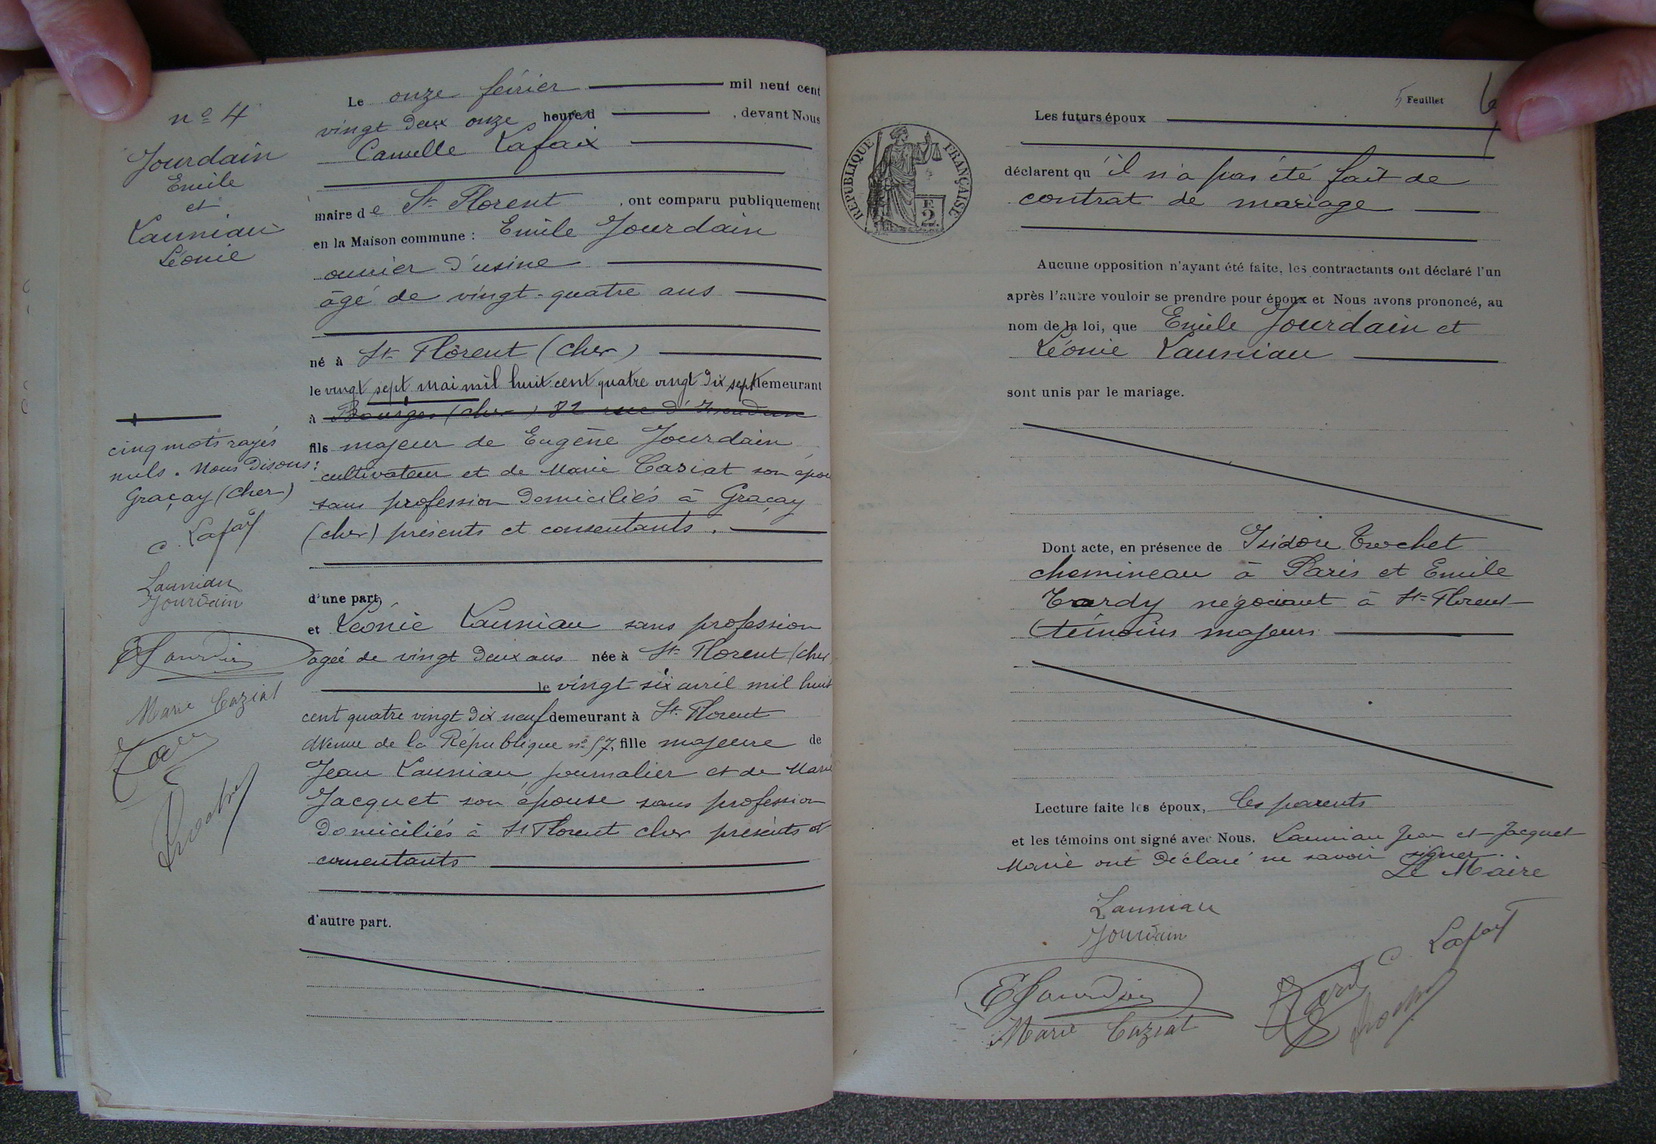 nº 4
Jourdain
Emile
et
Launiau
Léonie
cinq mots rayés
nuls. Nous disons:
Graçay (Cher)
C. Lafaix
Launiau
Jourdain
E Jourdain
Marie Caziat
Le onze février mil neuf cent
vingt deux onze heure d , devant Nous
Camille Lafaix
maire de St Florent , ont comparu publiquement
en la Maison commune : Emile Jourdain
ouvrier d'usine
âgé de vingt-quatre ans
né à St Florent (Cher)
le vingt sept mai mil huit cent quatre vingt dix sept demeurant
à Bourges (Cher) 82 rue d'Issoudun
fils majeur de Eugène Jourdain
cultivateur et de Marie Caziat son épou
sans profession domiciliés à Graçay
(Cher) présents et consentants.
d'une part,
et Léonie Launiau sans profession
agée de vingt deux ans née à St Florent (Cher
le vingt six avril mil huit
cent quatre vingt dix neuf demeurant à St Florent
avenue de la République nº 57, fille majeure de
Jean Launiau journalier et de Marie
Jacquet son épouse sans profession
domiciliés à St Florent Cher présents et
consentants
d'autre part.
5 Feuillet
6
RÉPUBLIQUE FRANÇAISE
E
2
Les futurs époux
déclarent qu'il n'a pas été fait de
contrat de mariage
Aucune opposition n'ayant été faite, les contractants ont déclaré l'un
après l'autre vouloir se prendre pour époux et Nous avons prononcé, au
nom de la loi, que Emile Jourdain et
Léonie Launiau
sont unis par le mariage.
Dont acte, en présence de Isidore Trochet
chemineau à Paris et Emile
Tardy négociant à St-Florent
témoins majeurs
Lecture faite les époux, les parents
et les témoins ont signé avec Nous. Launiau Jean et Jacquet
Marie ont déclaré ne savoir signer.
Le Maire
Launiau
Jourdain
C. Lafaix
E Jourdain
Marie Caziat